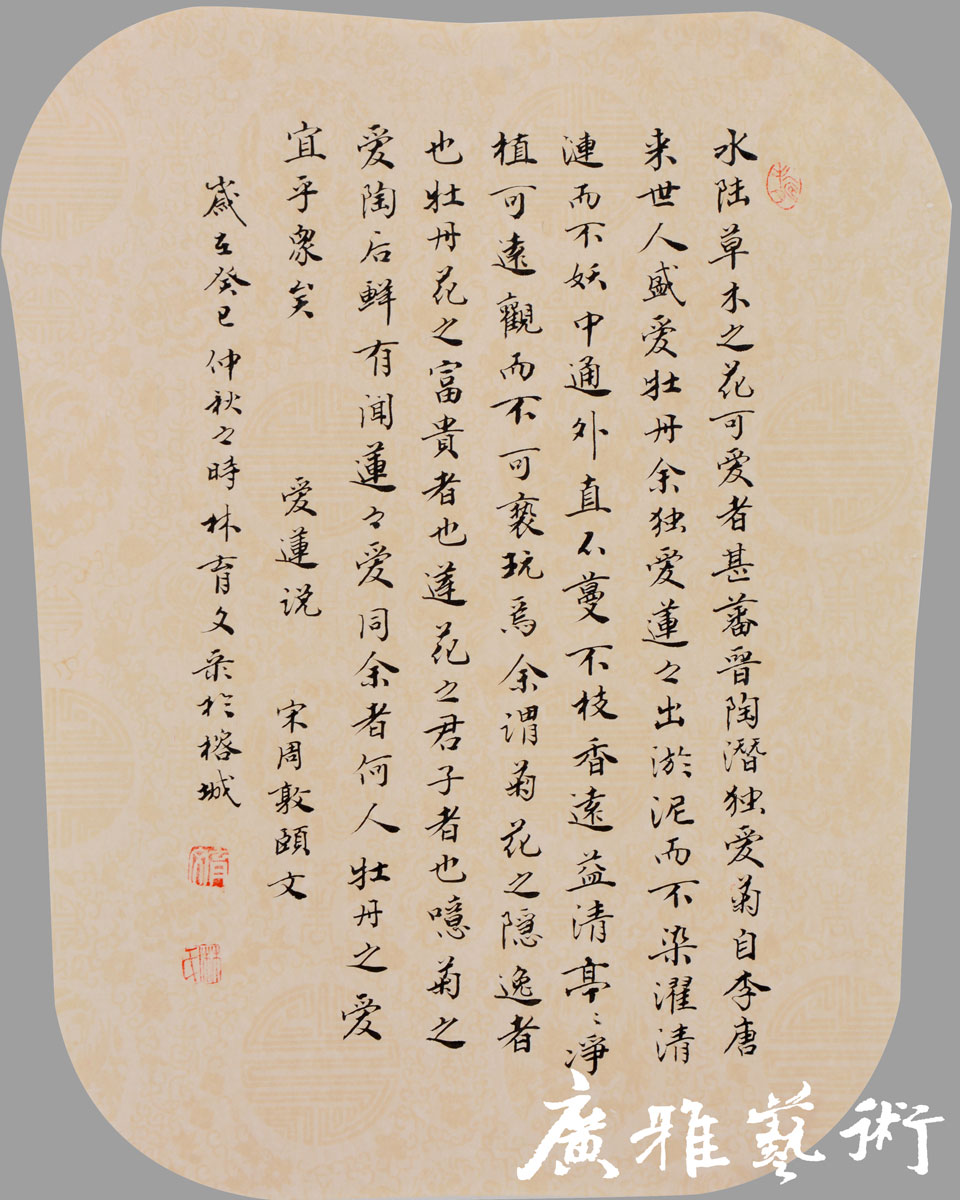 水陆草木之花可爱者甚蕃晋陶潛独爱菊自李唐
来世人盛爱牡丹余独爱蓮之出淤泥而不染濯清
漣而不妖中通外直不蔓不枝香遠益清亭〻净
植可遠觀而不可亵玩焉余谓菊花之隠逸者
也牡丹花之富貴者也莲花之君子者也噫菊之
爱陶后鲜有闻蓮之爱同余者何人牡丹之爱
宜乎衆矣 爱蓮说 宋周敦頤文
歲在癸巳仲秋之時林育文录於榕城
廣雅藝術